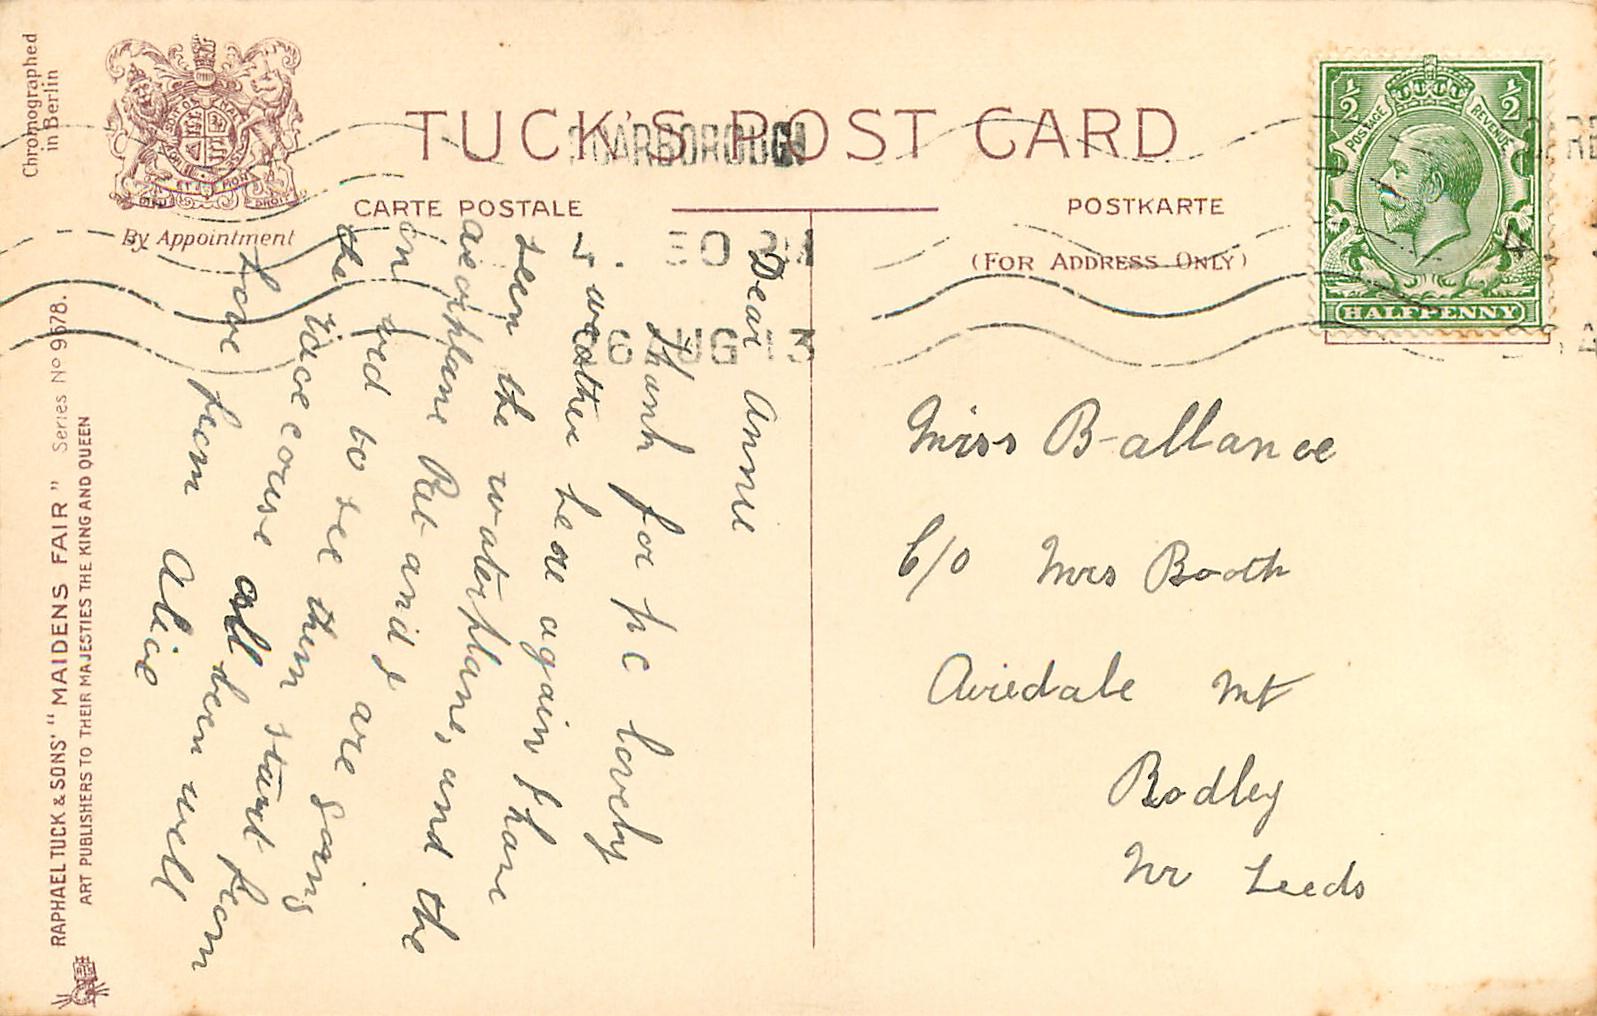 Chromographed
in Berlin
By Appointment
TUCK'S POST CARD
CARTE POSTALE
POSTKARTE
(FOR ADDRESS ONLY)
SCARBOROUGH
AUG 13
½ ½
POSTAGE REVENUE
HALFPENNY
RAPHAEL TUCK & SONS' "MAIDENS FAIR" Series No 9678.
ART PUBLISHERS TO THEIR MAJESTIES THE KING AND QUEEN
Dear Annie
Thank for pc lovely
weather here again I have
seen the waterplane, and the
aeorplane Pat and I are going
on wed to see them start from
the race course all been well
Love from Alice
Miss Ballance
C/o Mrs Booth
Airedale Mt
Rodley
Nr Leeds